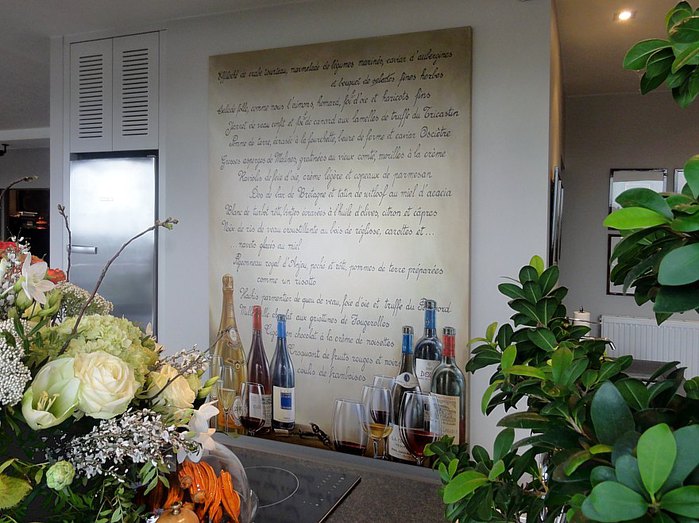 de crabe tourteau, marmelade de légumes marinés, caviar d'aubergines
et bouquet de salades, fines herbes
Salade folle, comme nous l'aimons, homard, foie d'oie et haricots fins
Jarret de veau confit et foie de canard aux lamelles de truffe du Tricastin
Pomme de terre, écrasée à la fourchette, beurre de ferme et caviar Osciètre
Grosses asperges de Malines, gratinées au vieux comté, morilles à la crème
Raviolis de foie d'oie, crème légère et copeaux de parmesan
Dos de bar de Bretagne et tatin de witloof au miel d'acacia
Blanc de turbot rôti, écrasées à l'huile d'olives, citron et câpres
Noix de ris de veau croustillante au bois de réglisse, carottes et ...
... navets glacés au miel
Pigeonneau royal d'Anjou, poché et rôti, pommes de terre préparées
comme un risotto
Hachis parmentier de queue de veau, foie d'oie et truffe du
aux griottines de Fougerolles
chocolat à la crème de noisettes
croquant de fruits rouges et
coulis de framboises